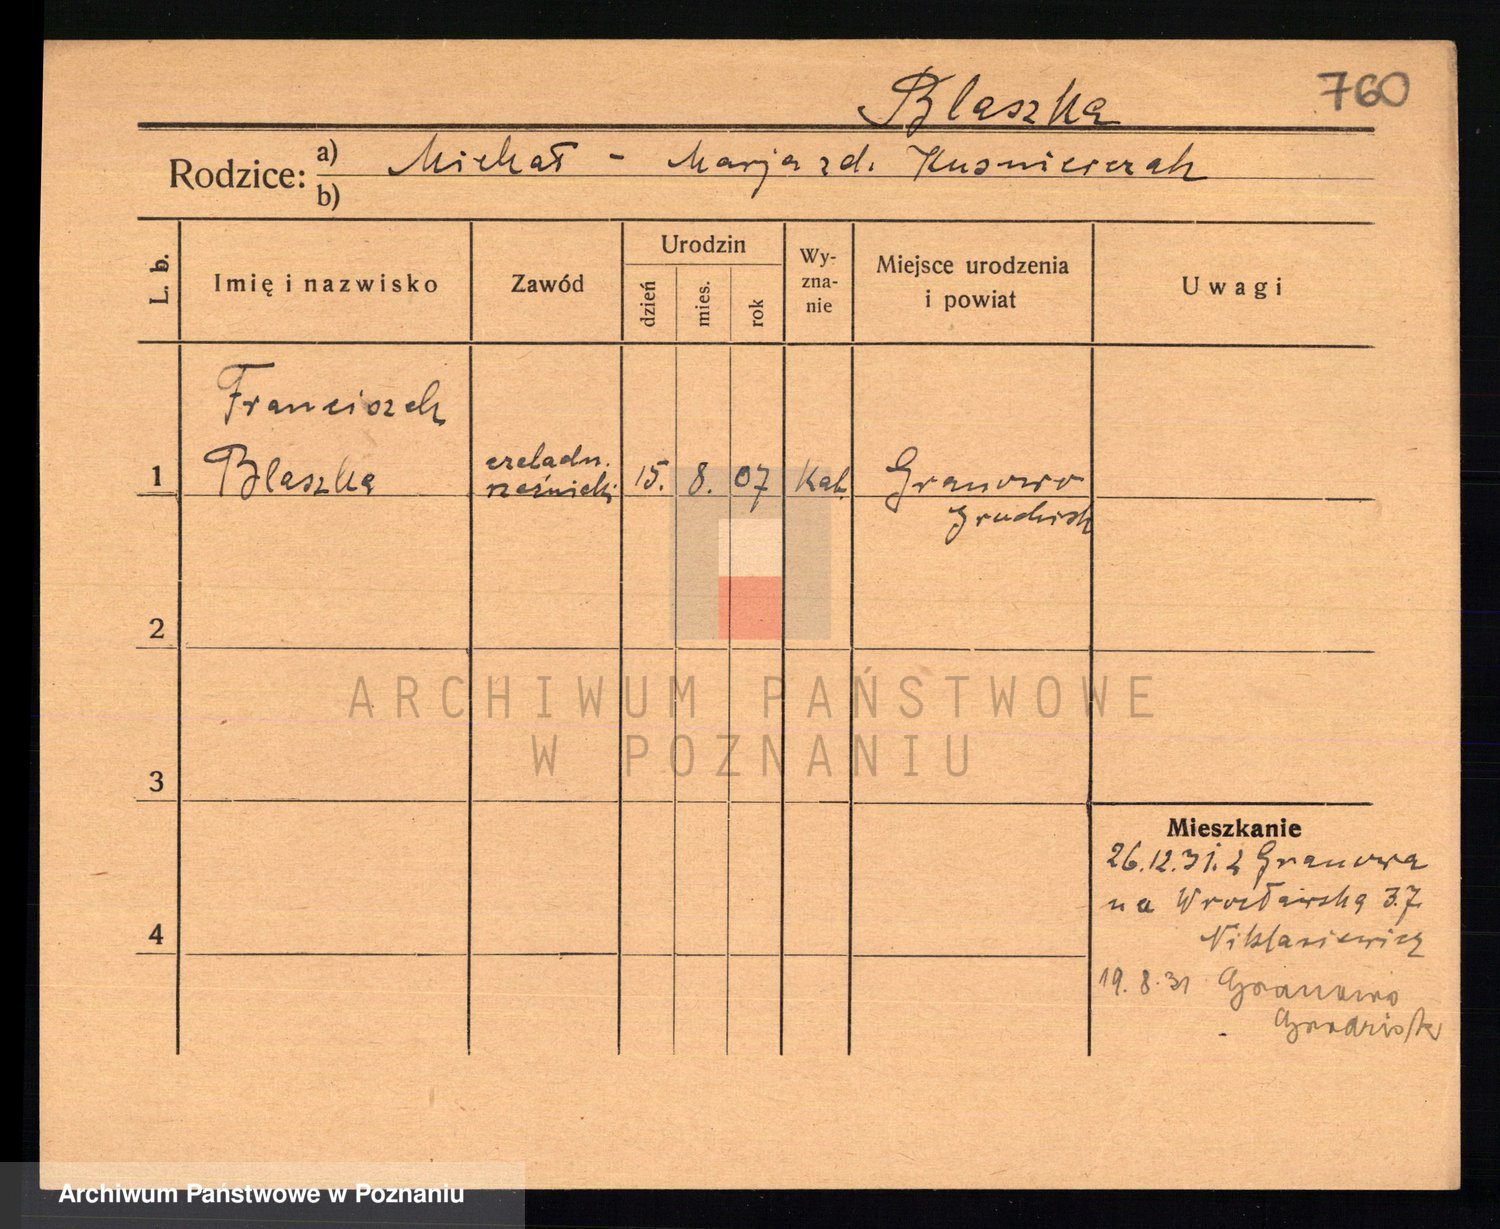 Blaszka 760
Rodzice: a) Michał - Marja zd. Kusnierczak
b)
L. b.
Imię i nazwisko
Zawód
Urodzin
dzień
mies.
rok
Wy-
zna-
nie
Miejsce urodzenia
i powiat
Uwagi
Franciszek
1 Blaszka
czeladn.
rzeźnicki
15. 8. 07 Kat.
Granowo
Grodzisk
2
ARCHIWUM PAŃSTWOWE
W POZNANIU
3
Mieszkanie
26.12.31. z Granowa
na Wrocławską 37.
4
Niklasiewicz
19.8.31 Granowo
Grodzisk
Archiwum Państwowe w Poznaniu